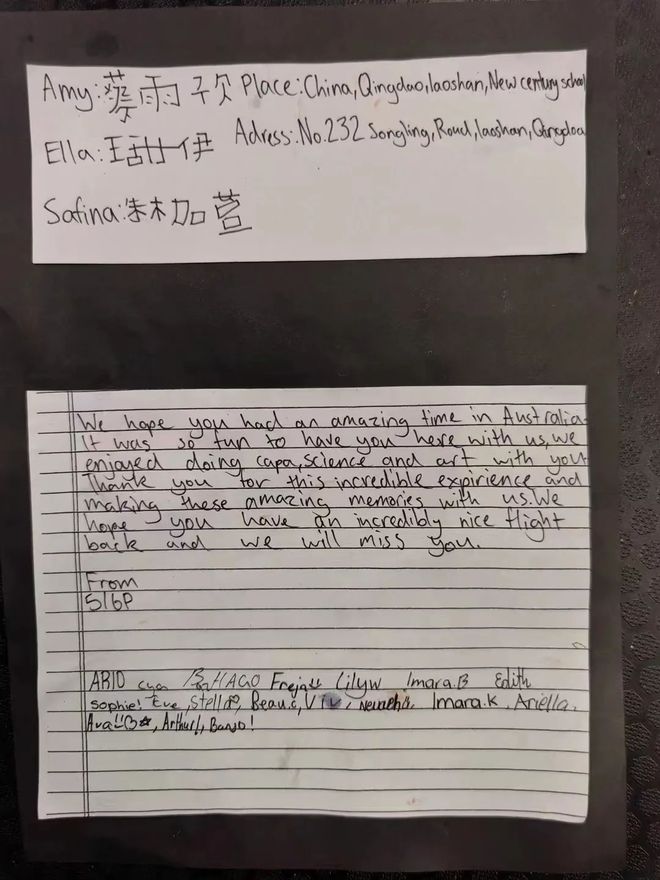 Amy:蔡雨 Place:China,Qingdao,laoshan,New century school
Ella:甜伊 Adress:No.232 Songling,Roud,laoshan,Qingdoa
Safina:加萱
We hope you had an amazing time in Australia.
It was so fun to have you here with us, we
enjoyed doing capa, science and art with you
Thank you for this incredible expirience and
making these amazing memories with us. We
hope you have an incredibly nice flight
back and we will miss you.
From
5/6P
Freja Lilyw Imara.B Edith
sophie! Eve, Stella, Beau.c, Viv, Imara.K, Ariella,
Ava, Arthur!, Banjo!